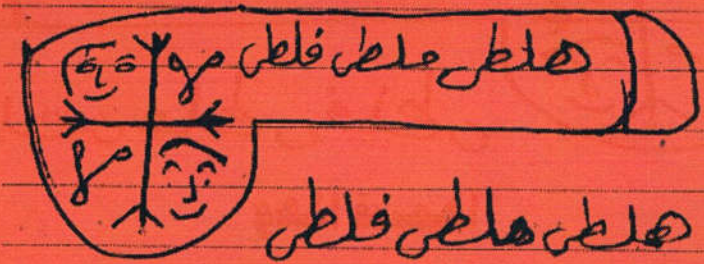 هلطى ملطى فلطى
هلطى هلطى فلطى